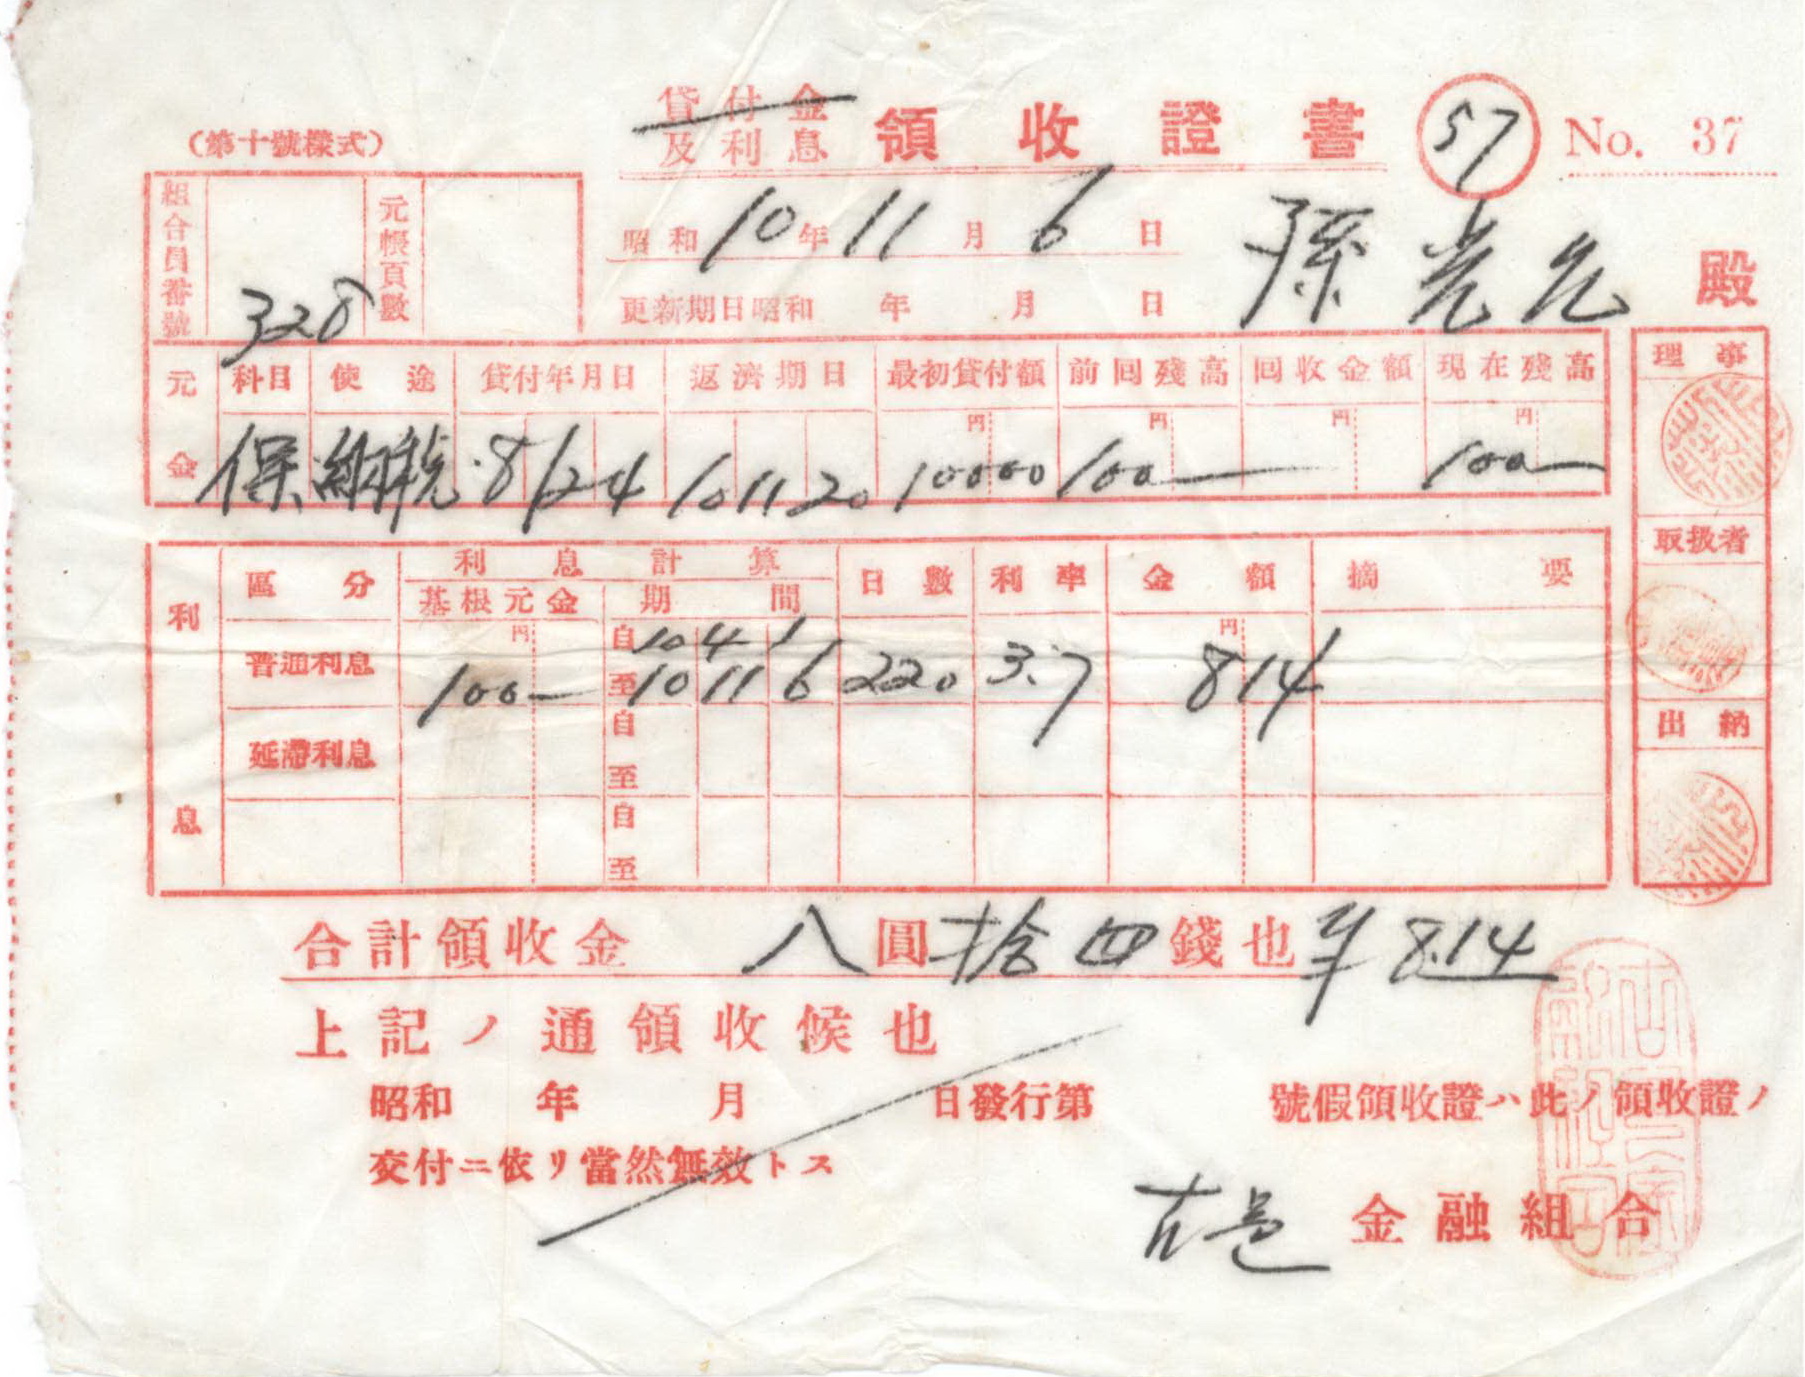 (第十號樣式)
貸付金
及利息 領收證書 57 No. 37
組合員番號 328 元帳頁數
昭和 10 年 11 月 6 日
孫 光 殿
更新期日昭和 年 月 日
元金 科目 使途 貸付年月日 返濟期日 最初貸付額 前回殘高 回收金額 現在殘高
円 円 円 円
保 納稅 8 12 4 10 11 20 100 00 100— 100—
理事
取扱者
出納
利息 區分 利息計算 日數 利率 金額 摘要
基根元金 期間
円 円
普通利息 100— 自 10 4 1
至 10 11 6 220 3.7 8 14
延滯利息 自
至
自
至
合計領收金 八圓拾四錢也 ¥8.14
上記ノ通領收候也
昭和 年 月 日發行第 號假領收證ハ此ノ領收證ノ
交付ニ依リ當然無效トス
古邑 金融組合